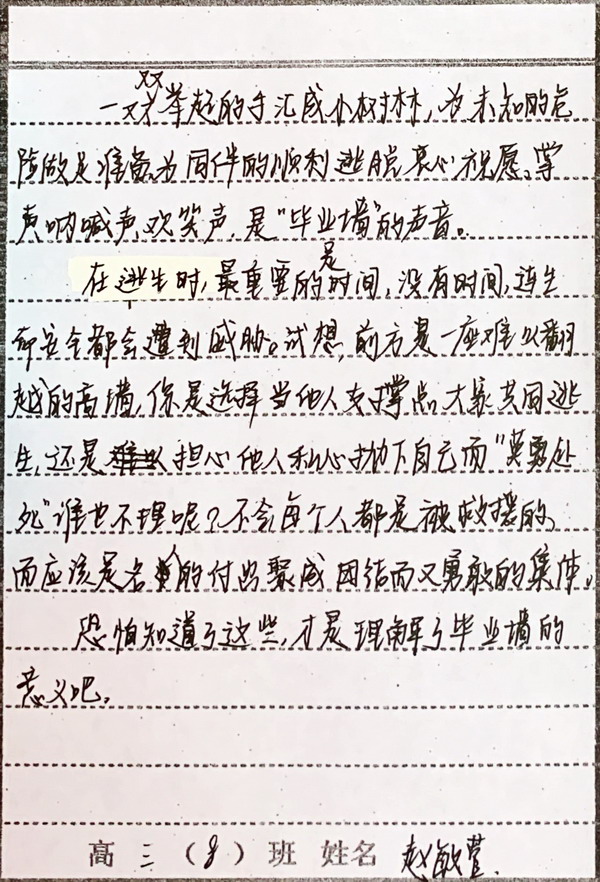 一双双举起的手汇成小树林，为未知的危
险做足准备。为同伴的顺利逃脱衷心祝愿。掌
声呐喊声、欢笑声，是“毕业墙”的声音。
在逃生时，最重要的是时间，没有时间，连生
命安全都会遭到威胁。试想，前方是一座难以翻
越的高墙，你是选择当他人支撑点，大家共同逃
生，还是担心他人私心抛下自己而“英勇处
死”谁也不理呢？不会每个人都是被救援的，
而应该是各的付出聚成团结而又勇敢的集体。
恐怕知道了这些，才是理解了毕业墙的
意义吧。
高三（8）班 姓名 赵敏萱.